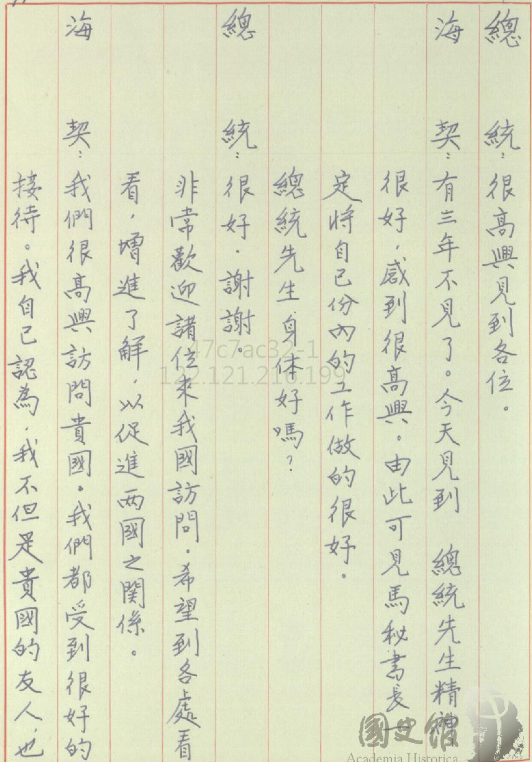 總統：很高興見到各位。
海契：有三年不見了。今天見到 總統先生精神
很好，感到很高興。由此可見馬秘書長一
定將自己份內的工作做的很好。
總統先生身体好嗎？
總統：很好，謝謝。
非常歡迎諸位來我國訪問。希望到各處看
看，增進了解，以促進兩國之關係。
海契：我們很高興訪問貴國。我們都受到很好的
接待。我自己認為，我不但是貴國的友人，也
47c7ac32-1
122.121.216.199
國史館
Academia Historica